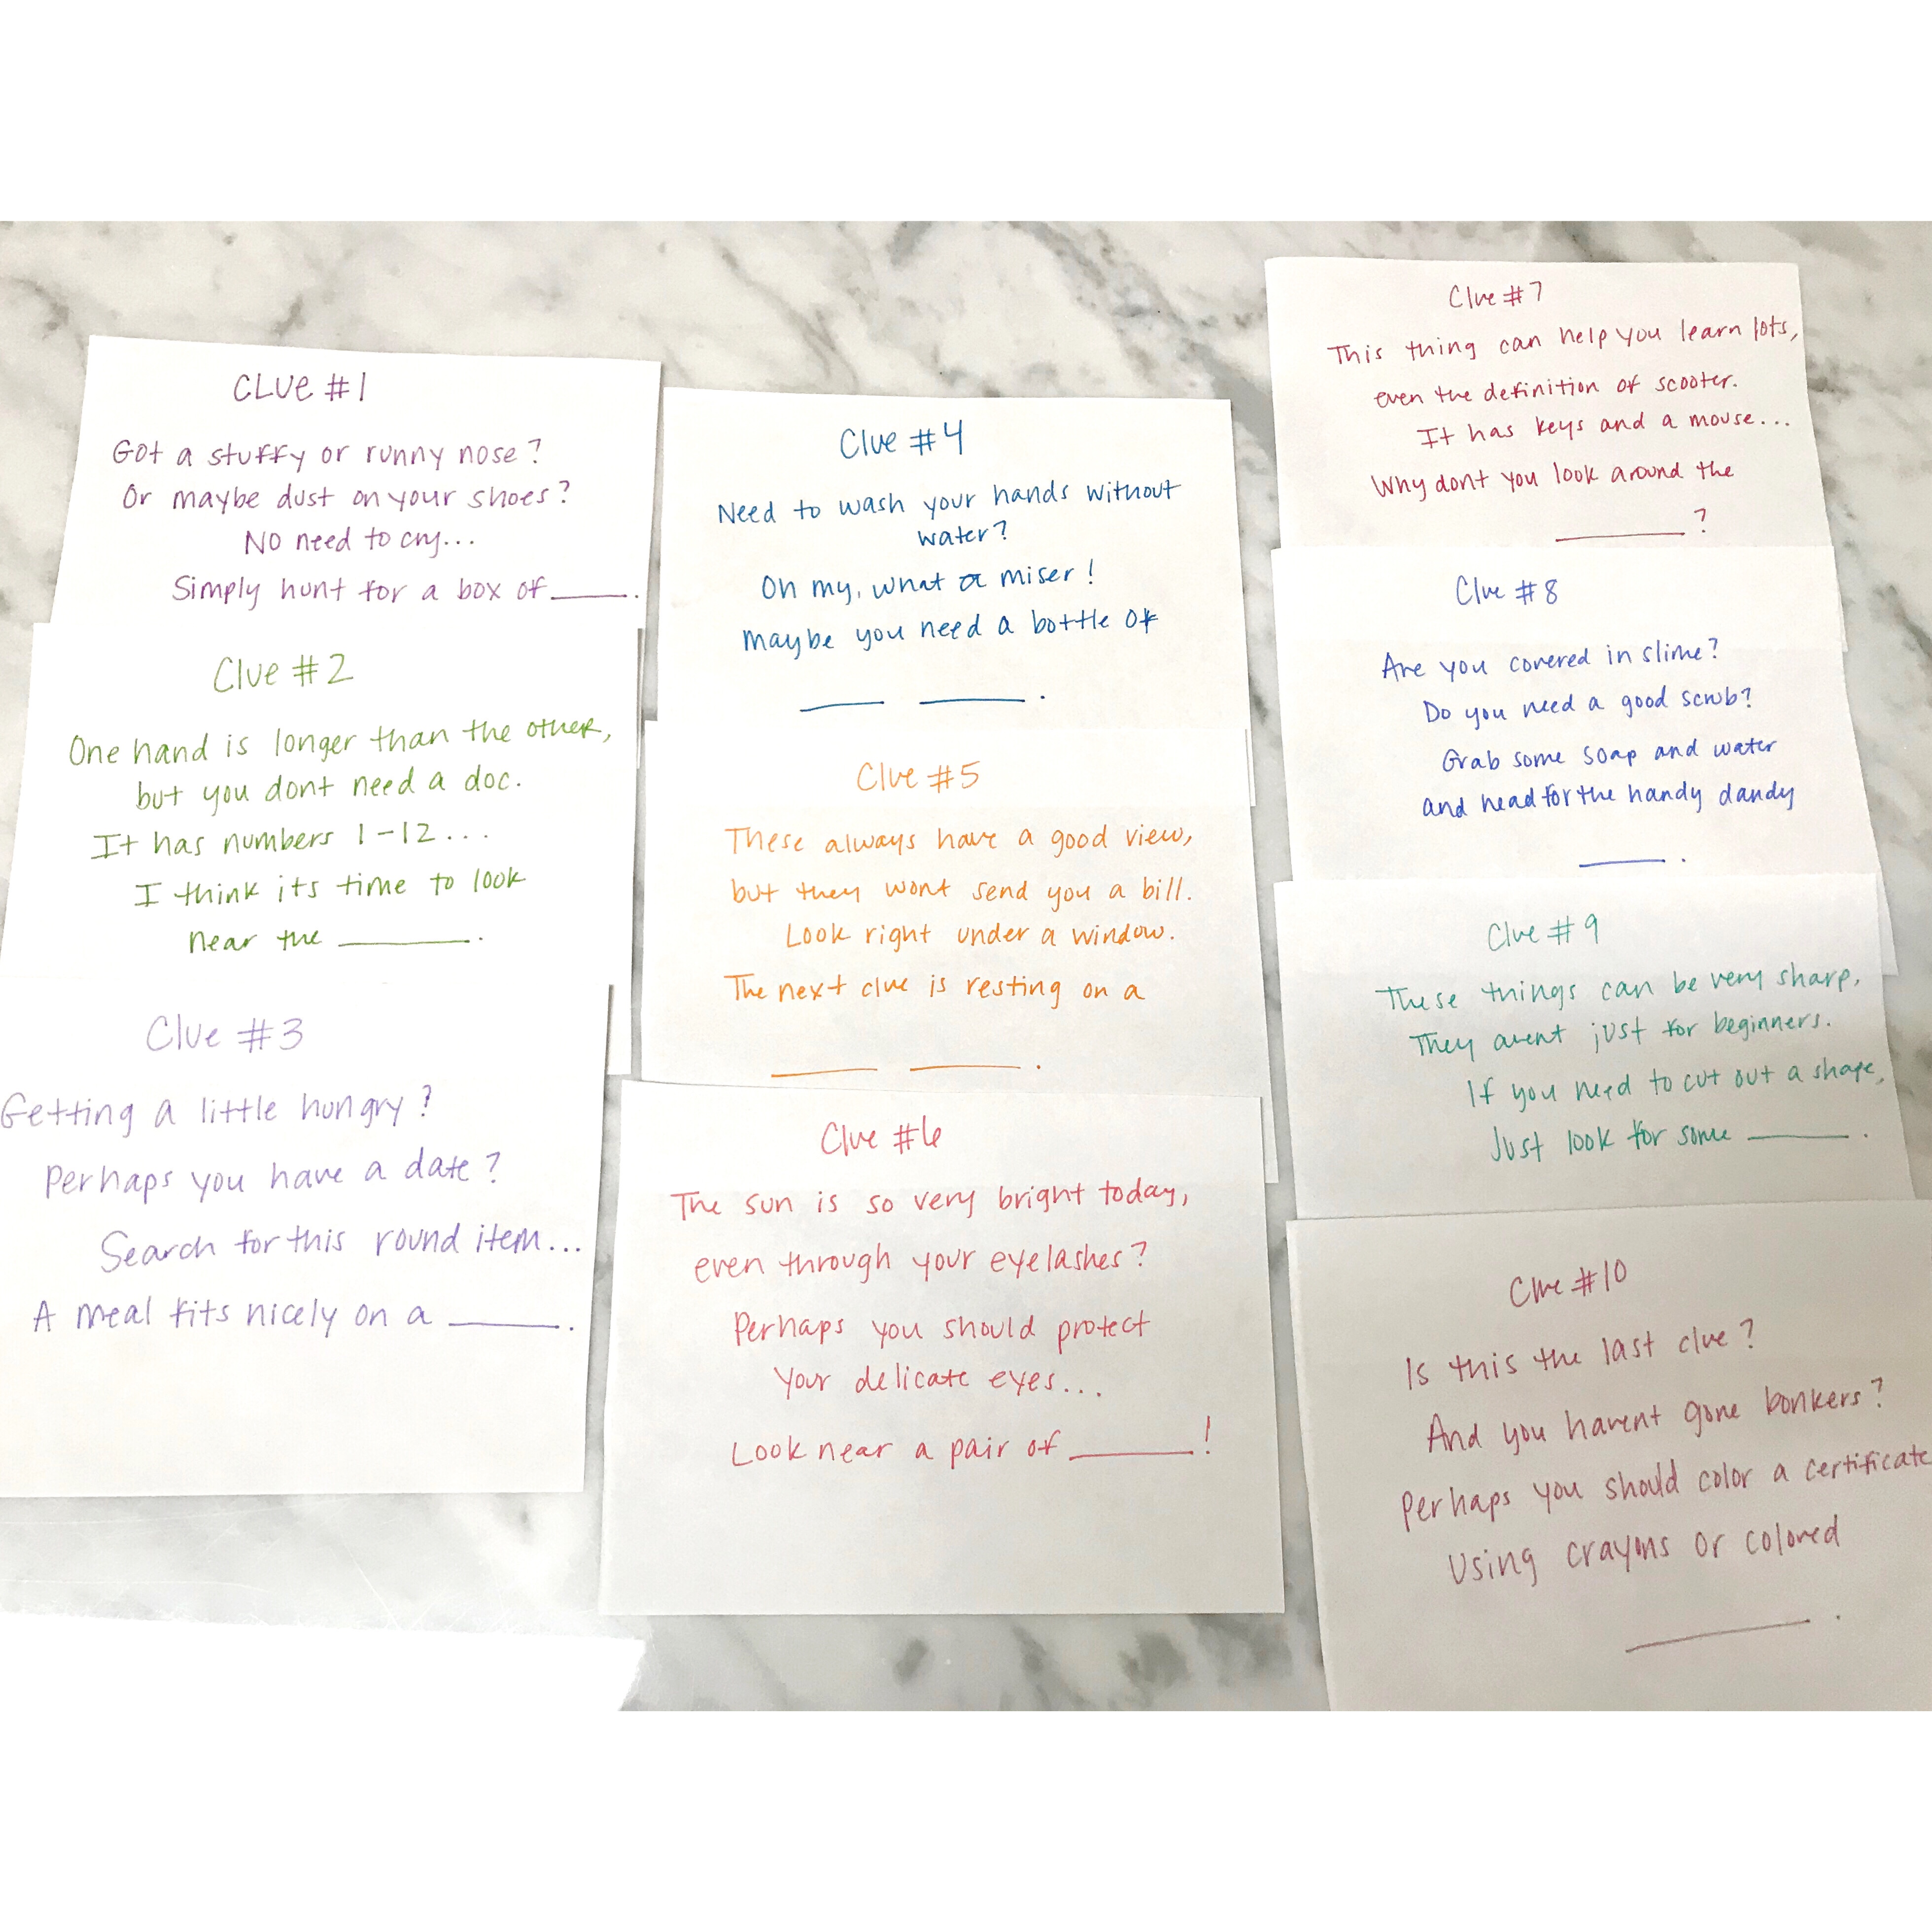 CLUE #1
Got a stuffy or runny nose?
Or maybe dust on your shoes?
No need to cry...
Simply hunt for a box of ____.
Clue #2
One hand is longer than the other,
but you dont need a doc.
It has numbers 1-12...
I think its time to look
near the ____.
Clue #3
Getting a little hungry?
Perhaps you have a date?
Search for this round item...
A meal fits nicely on a ____.
Clue #4
Need to wash your hands without
water?
Oh my, what a miser!
Maybe you need a bottle of
____ ____.
Clue #5
These always have a good view,
but they wont send you a bill.
Look right under a window.
The next clue is resting on a
____ ____.
Clue #6
The sun is so very bright today,
even through your eyelashes?
Perhaps you should protect
your delicate eyes...
Look near a pair of ____!
Clue #7
This thing can help you learn lots,
even the definition of scooter.
It has keys and a mouse...
Why dont you look around the
____?
Clue #8
Are you covered in slime?
Do you need a good scrub?
Grab some soap and water
and head for the handy dandy
____.
Clue #9
These things can be very sharp,
They arent just for beginners.
If you need to cut out a shape,
Just look for some ____.
Clue #10
Is this the last clue?
And you havent gone bonkers?
Perhaps you should color a certificate
Using crayons or colored
____.